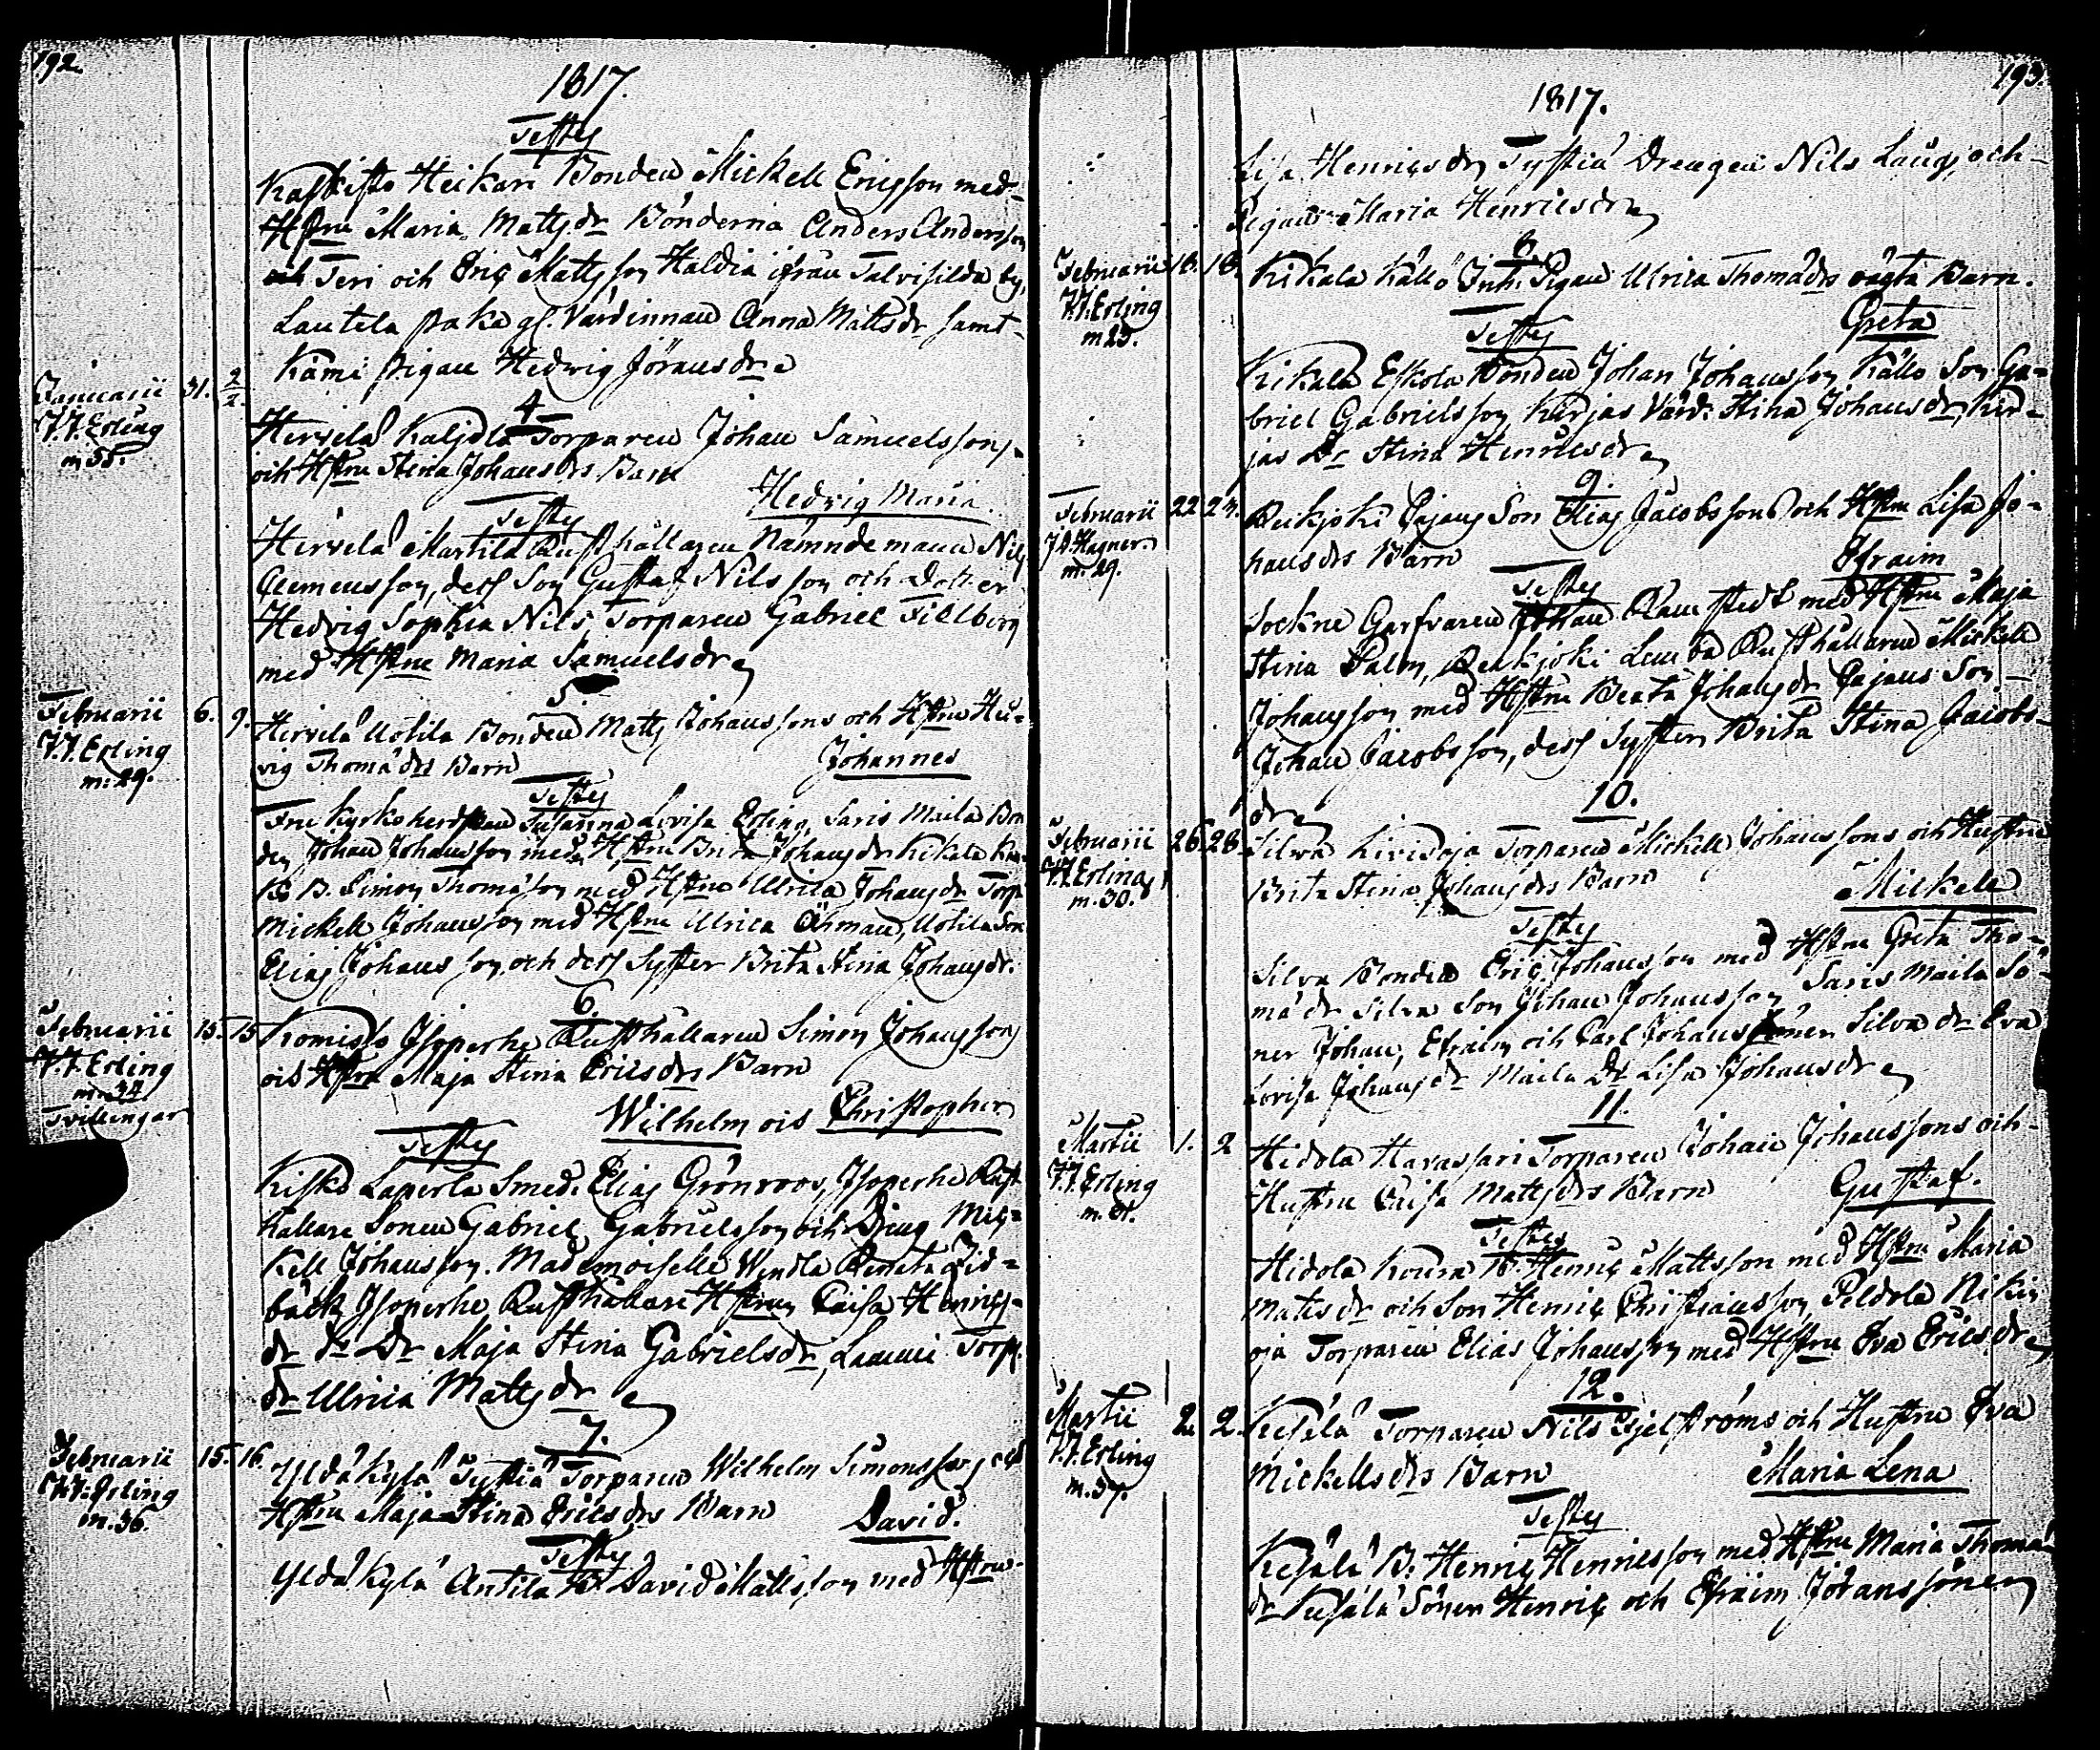 192.
1817.
Testes
Kaskisto Heikari Bonden Mickell Ericsson med
Hstru Maria Matts dr Bönderna Anders Andersson
Teri och Eric Mattsson Haldia ifrån Talvisilda by,
Lautela gl. Värdinnan Anna Matts dr samt
Kämi pigan Hedvig Jörans dr
Januarii 31. 2/2.
J.J. Erling
m 35.
4
Hirvelä Kaljola Torparen Johan Samuelssons
och Hstru Stina Johans drs Barn
Hedvig Maria.
Testes
Hirvelä Martila Rusthållaren Nämndeman Nils
Clemensson, dess Son Gustaf Nilsson och Dotter
Hedvig Sophia Nils, Torparen Gabriel Fillberg
med Hstru Maria Samuels dr
Februarii 6. 9.
J.J. Erling
m: 29.
5
Hirvelä Uotila Bonden Matts Johanssons och Hstru Hed-
vig Thomæ drs Barn
Johannes
Testes
Fru Kyrkoherdskan Susanna Lovisa Erling, Saris Maila Bon
den Johan Johansson med Hstru Brita Johans dr Kikala
B. Simon Thomasson med Hstru Ulrica Johans dr Torp.
Mickell Johansson med Hstru Ulrica Öhman, Uotila Son
Elias Johansson och dess Syster Brita Stina Johans dr.
Februarii 15. 15
J.J. Erling
m. 34
Tvillingar
6.
Komisso Isoperhe Rusthållaren Simon Johanssons
och Hstru Maja Stina Erics drs Barn
Wilhelm och Christopher
Testes
Kisko Laperla Smed. Elias Grönroos, Isoperhe Rust
hållare Sonen Gabriel Gabrielsson och Dräng Mic-
kell Johansson. Mademoiselle Wendla Renata Lid-
bäck Isoperhe Rusthållare Hstrun Caisa Henrics
dr Dr Maja Stina Gabriels dr, Lammi Torp.
dr Ulrica Matts dr
Februarii 15. 16.
J.J. Erling
m. 36.
7.
Yldäkylä Torparen Wilhelm Simonssons och
Hstru Maja Stina Erics drs Barn
David.
Testes
Yldäkylä Antila B. David Mattsson med Hstru
193.
1817.
Lisa Henrics dr, Drengen Nils Laurs, och
Pigan Maria Henrics dr
Februarii 16. 16.
J.J. Erling
m 23.
8.
Kikala Källo Inh. Pigan Ulrica Thomæ drs oägta Barn.
Greta
Testes
Kikala Eskola Bonden Johan Johansson, Källo Son Ga-
briel Gabrielsson, Kirjas Värd: Stina Johans dr, Kir-
jas Dr Stina Henrics dr
Februarii 22 23.
J.A. Hagner.
m. 29.
9.
Reikjoki Pajans Son Elias Jacobssons och Hstru Lisa Jo-
hans drs Barn
Efraim
Testes
Sockne Garfvaren Johan Ramstedt med Hstru Maja
Stina Palm, Reikjoki Lemba Rusthållaren Mickell
Johansson med Hstru Beata Johans dr Pajans Son
Johan Jacobsson, dess Syster Brita Stina Jacobs
dr
Februarii 26 28
J.J. Erling
m. 30.
10.
Silva Kivioja Torparen Mickell Johanssons och Hustru
Brita Stina Johans drs Barn
Mickell
Testes
Silva Bonden Eric Johansson med Hstru Greta Tho-
mæ dr Silva Son Johan Johansson Saris Maila Sö-
ner Johan, Efraim och Carl Johanssöner Silva dr Eva
Lovisa Johans dr Maila Dr Lisa Johans dr
Martii 1. 2
J.J. Erling
m. 31.
11.
Hidola Haravsari Torparen Johan Johanssons och
Hustru Caisa Matts drs Barn
Gustaf.
Testes
Hidola Koura B. Henric Mattsson med Hstru Maria
Mats dr och Son Henric Christiansson, Peldola Niki
oja Torparen Elias Johansson med Hstru Eva Erics dr
Martii 2. 2.
J.J. Erling
m. 37.
12.
Kesälä Torparen Nils Hjelströms och Hustru Eva
Mickells drs Barn
Maria Lena
Testes
Kesälä B. Henric Henricsson med Hstru Maria Thomæ
dr Kesälä Söner Henric och Efraim Johanssöner